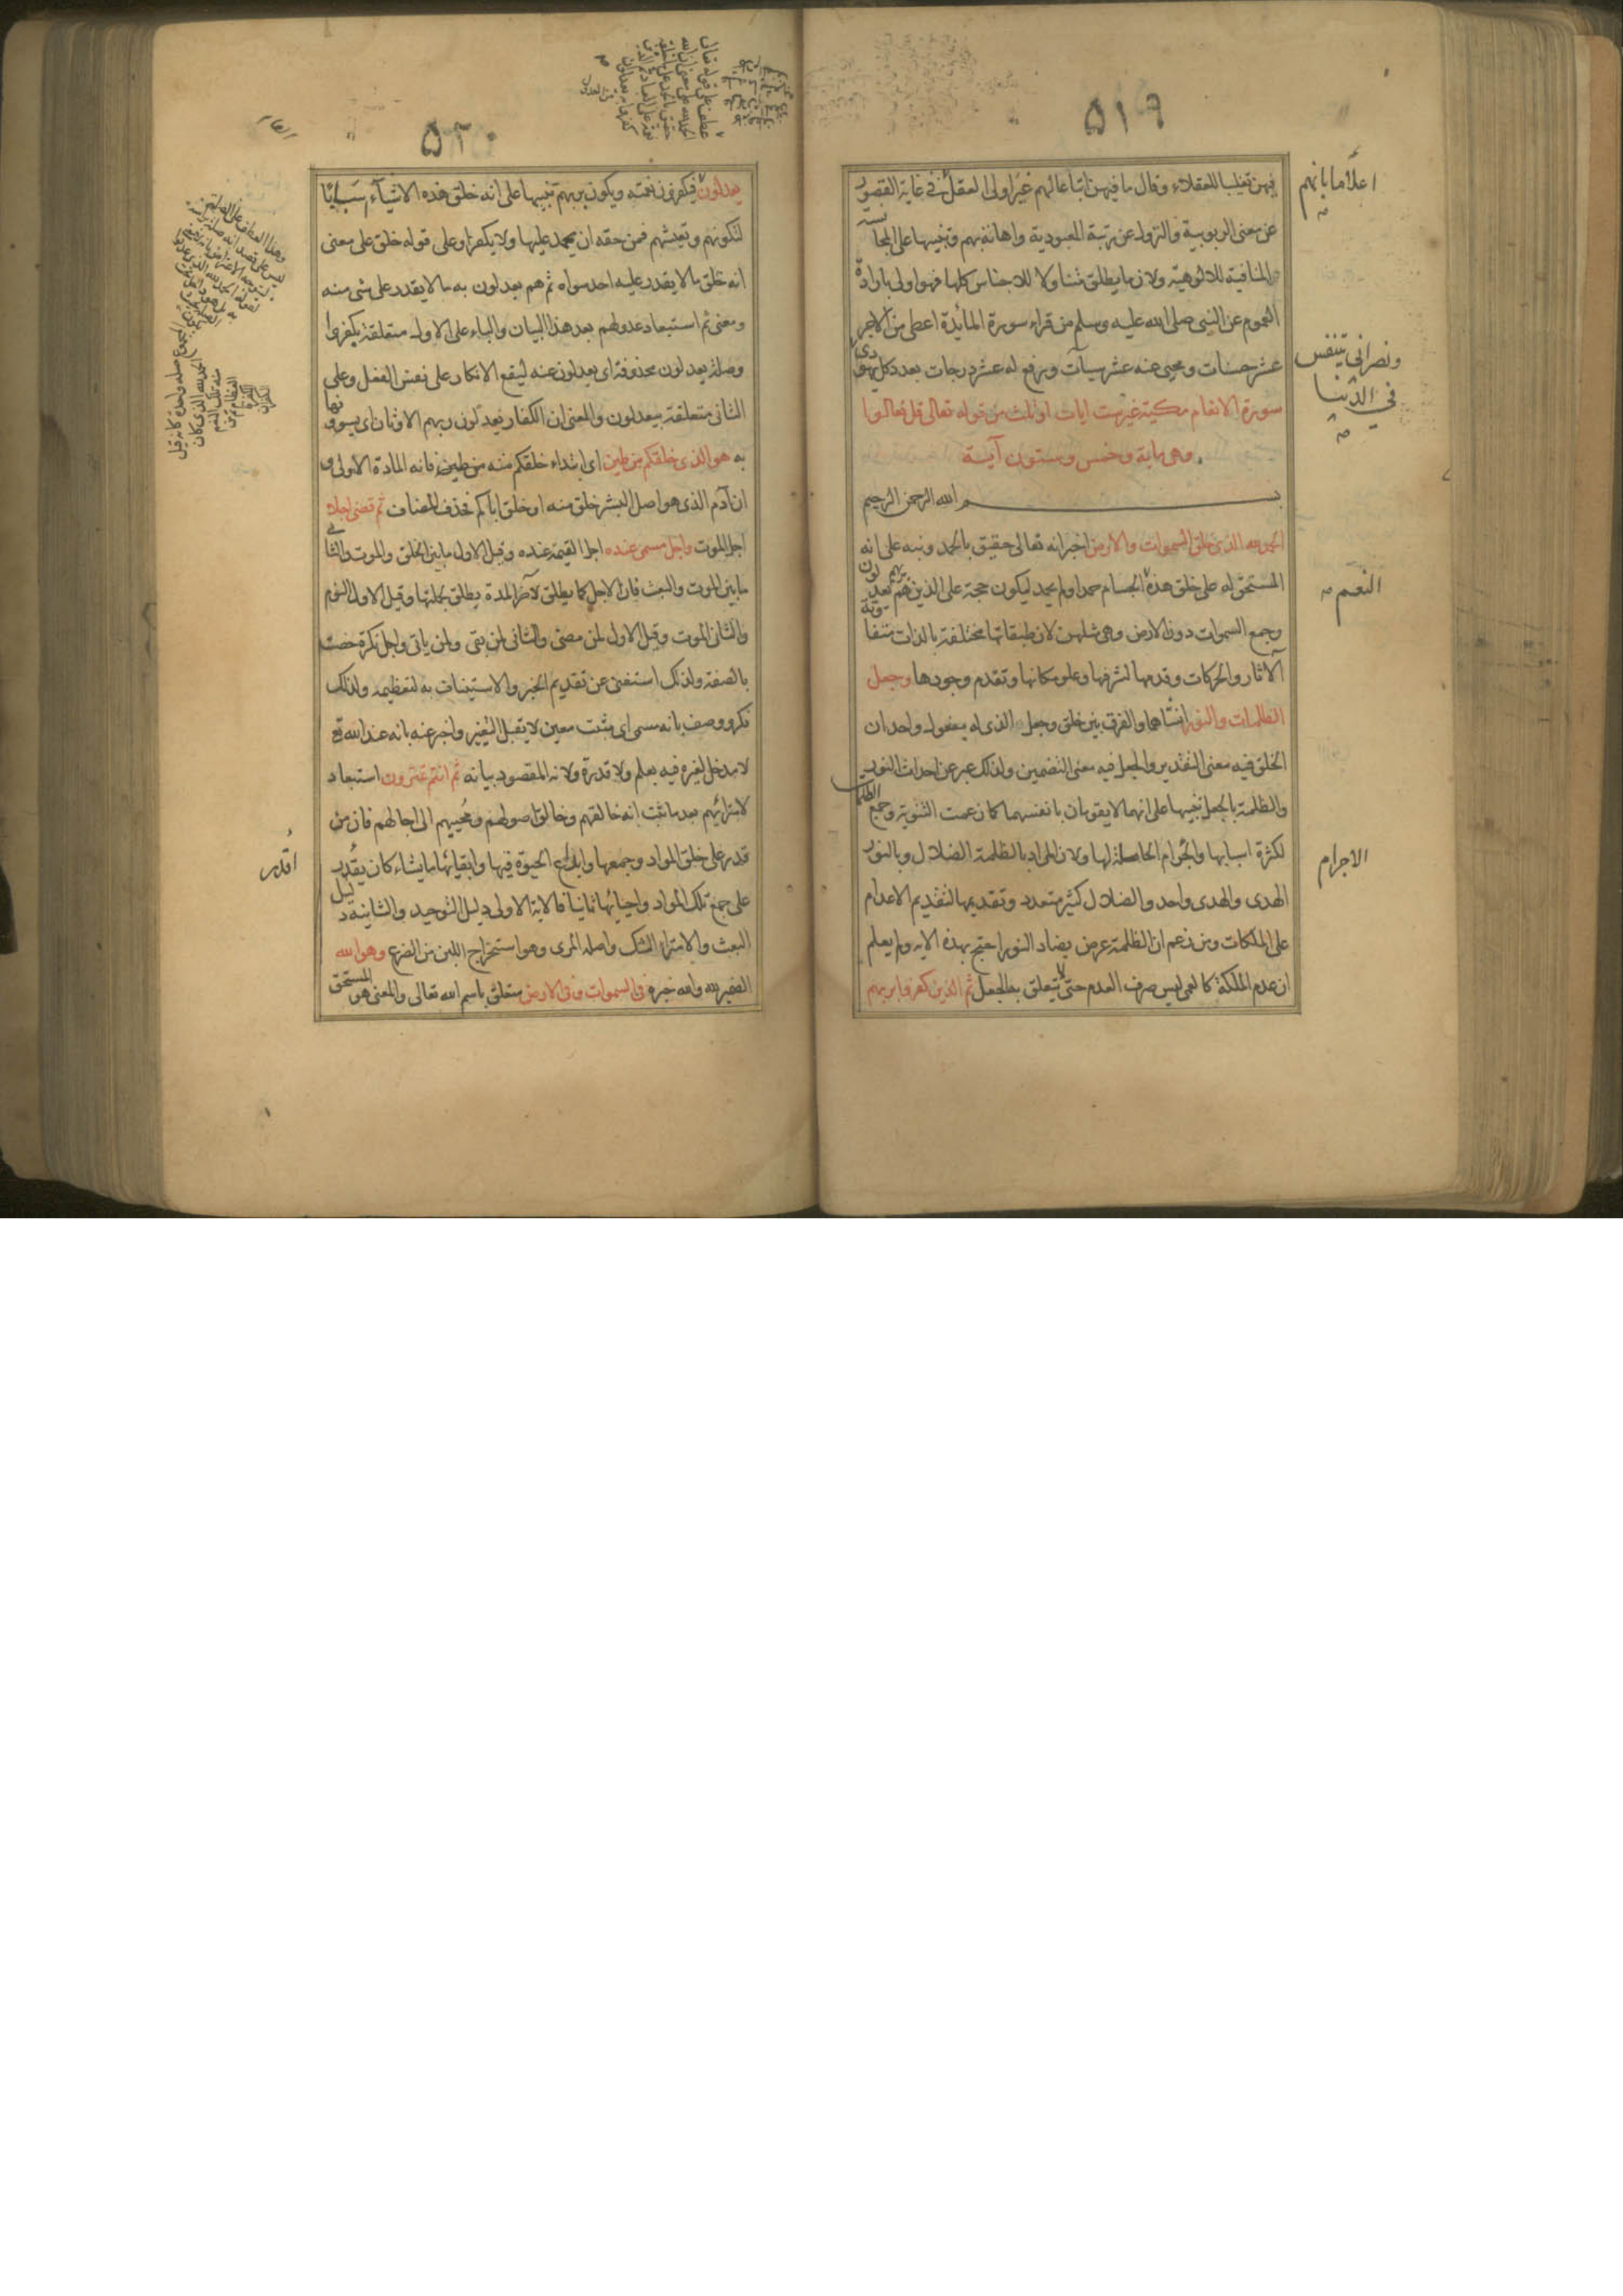 ٥١٩
فيهن تغليبا للعقلاء وقال ما فيهن اتباعا لهم غير اولى العقل في غاية القصور
عن معنى الربوبية والنزول عن رتبة المعبودية واهانة بهم وتنبيها على المجانسة
المنافية للالوهية ولان ما يطلق متناولا للاجناس كلها فهو اولى بارادة
العموم عن النبي صلى الله عليه وسلم من قراء سورة المائدة اعطى من الاجر
عشر حسنات ومحى عنه عشر سيآت ورفع له عشر درجات بعدد كل يهودى
سورة الانعام مكية غير ست ايات او ثلث من قوله تعالى قل تعالوا
وهى ماية وخمس وستون آية
بسم الله الرحمن الرحيم
الحمد لله الذى خلق السموات والارض اخبر انه تعالى حقيق بالحمد ونبه على انه
المستحق له على خلق هذه الجسام حمد او لم يحمد ليكون حجة على الذين هم بربهم يعدلون
وجمع السموات دون الارض وهى مثلهن لان طبقاتها مختلفة بالذات متفاوتة
الآثار والحركات وقدمها لشرفها وعلو مكانها وتقدم وجودها وجعل
الظلمات والنور انشاهما والفرق بين خلق وجعل الذى له مفعول واحد ان
الخلق فيه معنى التقدير والجعل فيه معنى التضمين ولذلك عبر عن احداث النور
والظلمة بالجعل تنبيها على انهما لا يقومان بانفسهما كما زعمت الثنوية وجمع الظلمات
لكثرة اسبابها والجرام الحاصلة لها ولان المراد بالظلمة الضلال وبالنور
الهدى والهدى واحد والضلال كثير متعدد وتقديمها لتقديم الاعدام
على الملكات ومن زعم ان الظلمة عرض يضاد النور احتج بهذه الايه ولم يعلم
ان عدم الملكة كالعمى ليس صرف العدم حتى لا يتعلق به الجعل ثم الذين كفروا بربهم
اعلاما بانهم
ونصرانى يتنفس
في الدنيا
النعم
الاجرام
٥٢٠
يعدلون فيكفرون نعمته ويكون بربهم تنبيها على انه خلق هذه الاشيآء سببا
لتكونهم وتعيشهم فمن حقه ان يحمد عليها ولا يكفر او على قوله خلق على معنى
انه خلق ما لا يقدر عليه احد سواه ثم هم يعدلون به ما لا يقدر على شى منه
ومعنى ثم استبعاد عدولهم بعد هذا البيان والباء على الاول متعلقة بكفروا
وصلة يعدلون محذوفة اى يعدلون عنه ليقع الانكار على نفس الفعل وعلى
الثانى متعلقة بيعدلون والمعنى ان الكفار يعدلون ربهم الاوثان اى يسوونها
به هو الذى خلقكم من طين اى ابتداء خلقكم منه من طين فانه المادة الاولى و
ان آدم الذى هو اصل البشر خلق منه او خلق اباكم فحذف المضاف ثم قضى اجلا
اجل الموت واجل مسمى عنده اجل القيمة عنده وقيل الاول ما بين الخلق والموت والثانى
ما بين الموت والبعث فان الاجل كما يطلق لآخر المدة يطلق بجملتها وقيل الاول النوم
والثانى الموت وقيل الاول لمن مضى والثانى لمن بقى ولمن ياتى واجل نكرة خصت
بالصفة ولذلك استغنى عن تقديم الخبر والاستيناف به لتعظيمه ولذلك
نكر ووصف بانه مسمى اى مثبت معين لا يقبل التغير واخبر عنه بانه عند الله تع
لا مدخل لغيره فيه بعلم ولا قدرة ولانه المقصود بيانه ثم انتم تمترون استبعاد
لامترائهم بعد ما ثبت انه خالقهم وخالق اصولهم ومحييهم الى اجالهم فان من
قدر على خلق المواد وجمعها وابداع الحيوة فيها وابقيائها ما يشاء كان يقدر
على جمع تلك المواد واحيائها ثانيا فالاية الاولى دليل التوحيد والثانية دليل
البعث والامتراء الشك واصله المرى وهو استخراج اللبن من الضرع وهو الله
الضمير لله والله خبره فى السموات وفى الارض متعلق باسم الله تعالى والمعنى هو المستحق
اقدر